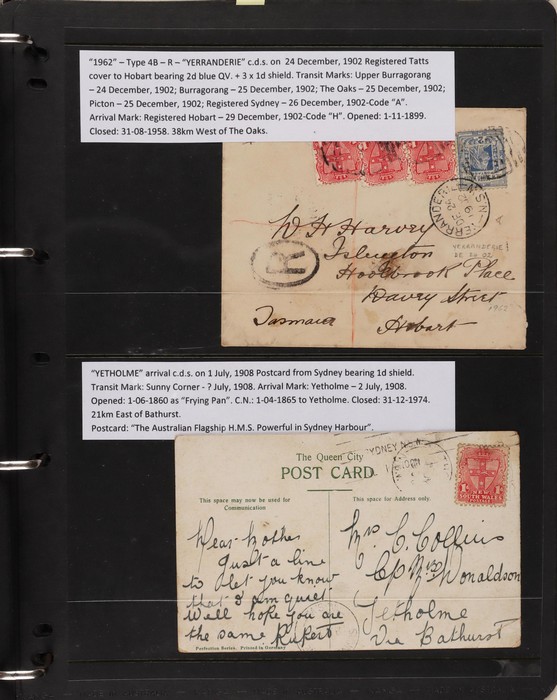 "1962" – Type 4B – R – "YERRANDERIE" c.d.s. on  24 December, 1902 Registered Tatts
cover to Hobart bearing 2d blue QV. + 3 x 1d shield. Transit Marks: Upper Burragorang
– 24 December, 1902; Burragorang – 25 December, 1902; The Oaks - 25 December, 1902;
Picton – 25 December, 1902; Registered Sydney – 26 December, 1902-Code "A".
Arrival Mark: Registered Hobart – 29 December, 1902-Code "H". Opened: 1-11-1899.
Closed: 31-08-1958. 38km West of The Oaks.
W H Harvey
Islington
Holbrook Place
Davey Street
Hobart
Tasmania
R
YERRANDERIE
"YETHOLME" arrival c.d.s. on 1 July, 1908 Postcard from Sydney bearing 1d shield.
Transit Mark: Sunny Corner - ? July, 1908. Arrival Mark: Yetholme – 2 July, 1908.
Opened: 1-06-1860 as "Frying Pan". C.N.: 1-04-1865 to Yetholme. Closed: 31-12-1974.
21km East of Bathurst.
Postcard: "The Australian Flagship H.M.S. Powerful in Sydney Harbour".
The Queen City
POST CARD
This space may now be used for
Communication
This space for Address only.
SYDNEY N.S.W
NEW
SOUTH WALES
Dear Mother
Just a line
to let you know
that I am quiet
well hope you are
the same Rupert
Mrs C. Collins
C/o Mrs Donaldson
Yetholme
Via Bathurst
Perfection Series. Printed in Germany